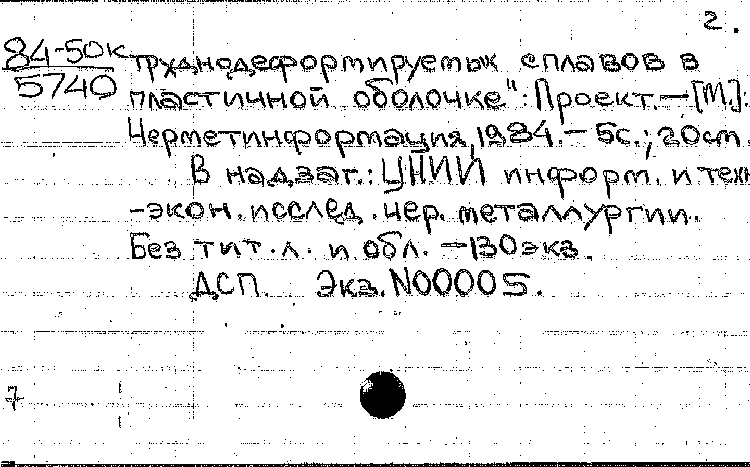 2.
84-50к
5740
труднодеформируемых сплавов в
пластичной оболочке": Проект. — [М.]:
Черметинформация, 1984. — 5с.; 20см.
В надзаг.: ЦНИИ информ. и техн
-экон. исслед. чер. металлургии.
Без тит. л. и обл. — 130 экз.
ДСП. Экз. N00005.
7